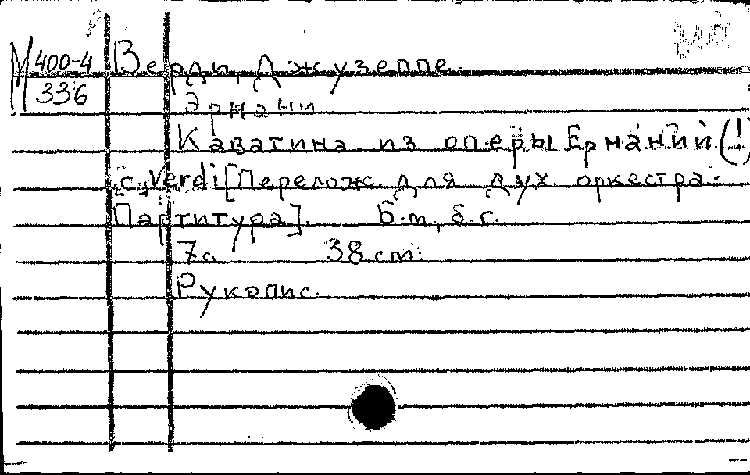 М 400-4
336
Верди, Джузеппе.
Эрнани
Каватина из оперы Ернаний (!)
с. Verdi [Перелож. для дух. оркестра.
Партитура]. Б.м., б.г.
7с. 38 cm.
Рукопис.